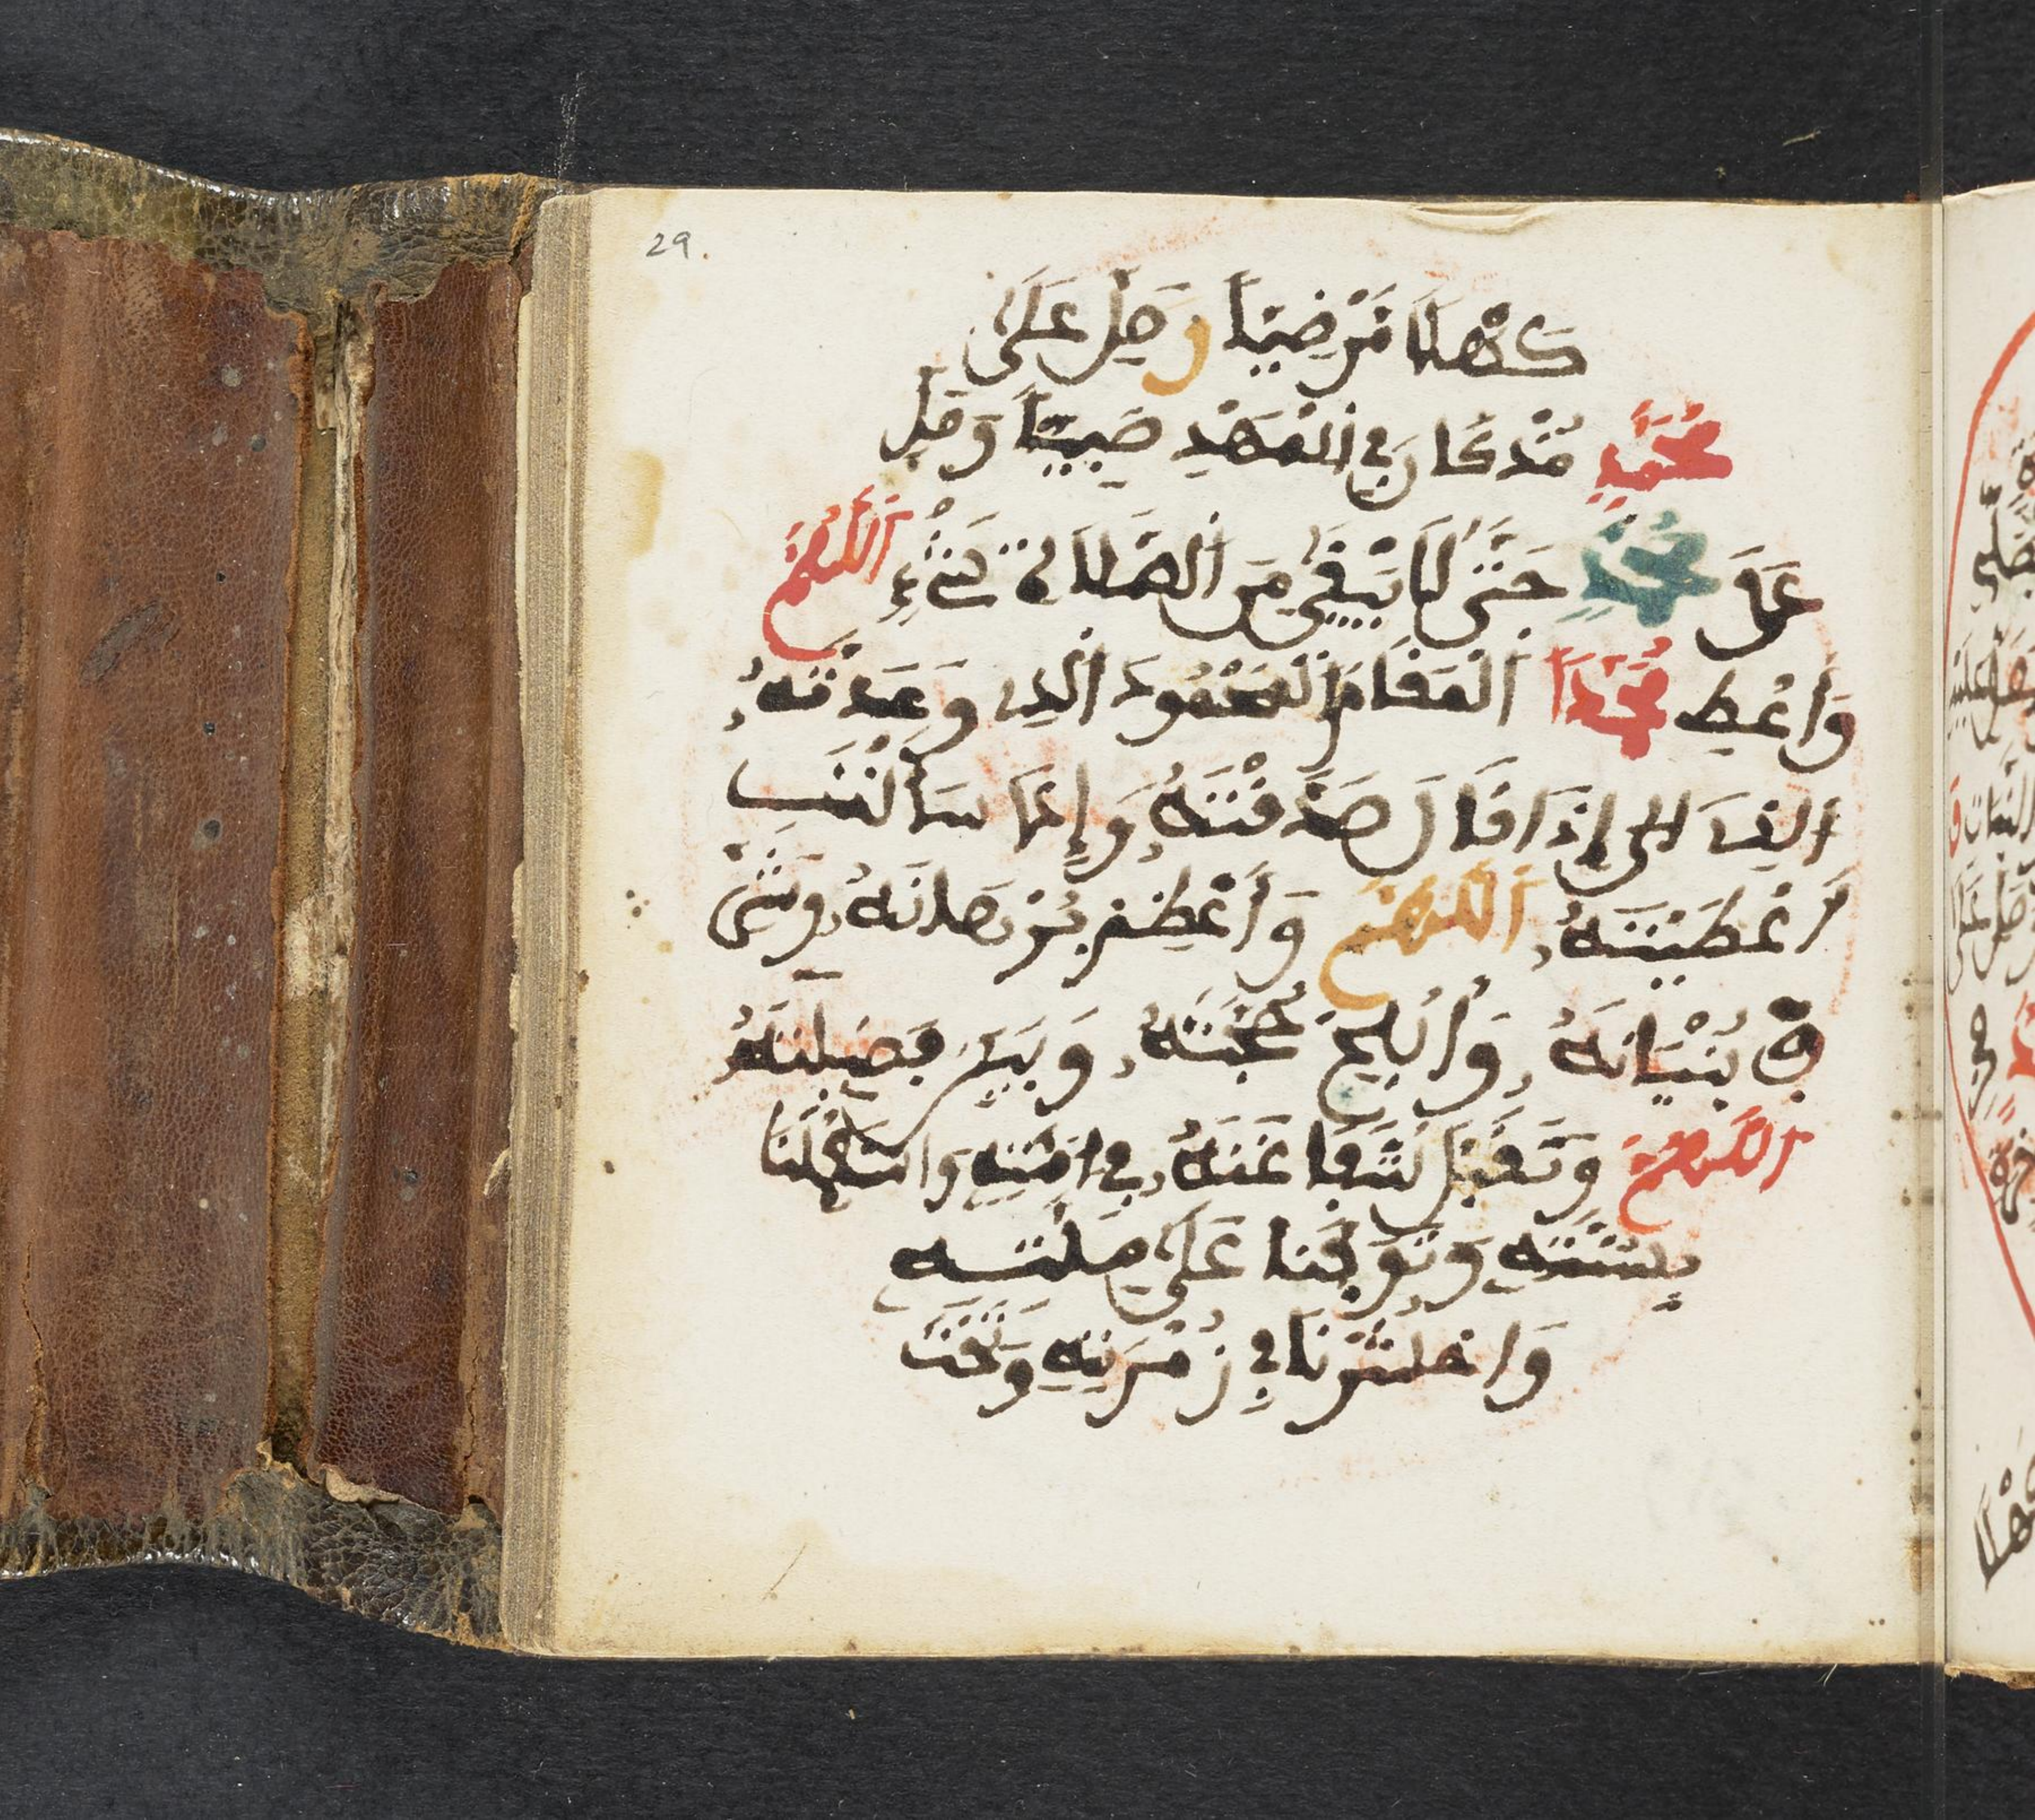 29.
كَهْلًا مَّرْضِيًّا وَصَلِّ عَلَى
مُحَمَّدٍ مُنْذُ كَانَ فِي الْمَهْدِ صَبِيًّا وَصَلِّ
عَلَى مُحَمَّدٍ حَتَّى لَا يَبْقَى مِنَ الصَّلَاةِ شَيْءٌ اَللَّهُمَّ
وَاَعْطِ مُحَمَّدًا الْمَقَامَ الْمَحْمُودَ الَّذِي وَعَدْتَهُ
الَّذِي إِذَا قَالَ صَدَّقْتَهُ وَإِذَا سَأَلَ
أَعْطَيْتَهُ اَللَّهُمَّ وَأَعْظِمْ بُرْهَانَهُ وَشَرِّ
فْ بُنْيَانَهُ وَأَبْلِجْ حُجَّتَهُ وَبَيِّنْ فَضِيلَتَهُ
اَللَّهُمَّ وَتَقَبَّلْ شَفَاعَتَهُ فِي اُمَّتِهِ وَاسْتَعْمِلْنَا
بِسُنَّتِهِ وَتَوَفَّنَا عَلَى مِلَّتِهِ
وَاحْشُرْنَا فِي زُمْرَتِهِ وَتَحْتَ